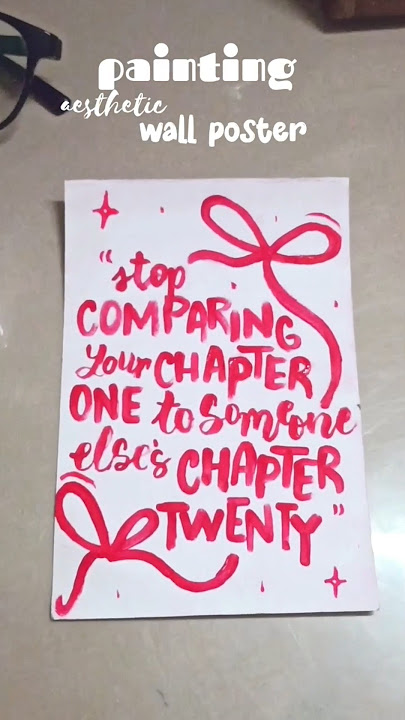 painting
aesthetic
wall poster
"stop
COMPARING
your CHAPTER
ONE to someone
else's CHAPTER
TWENTY"